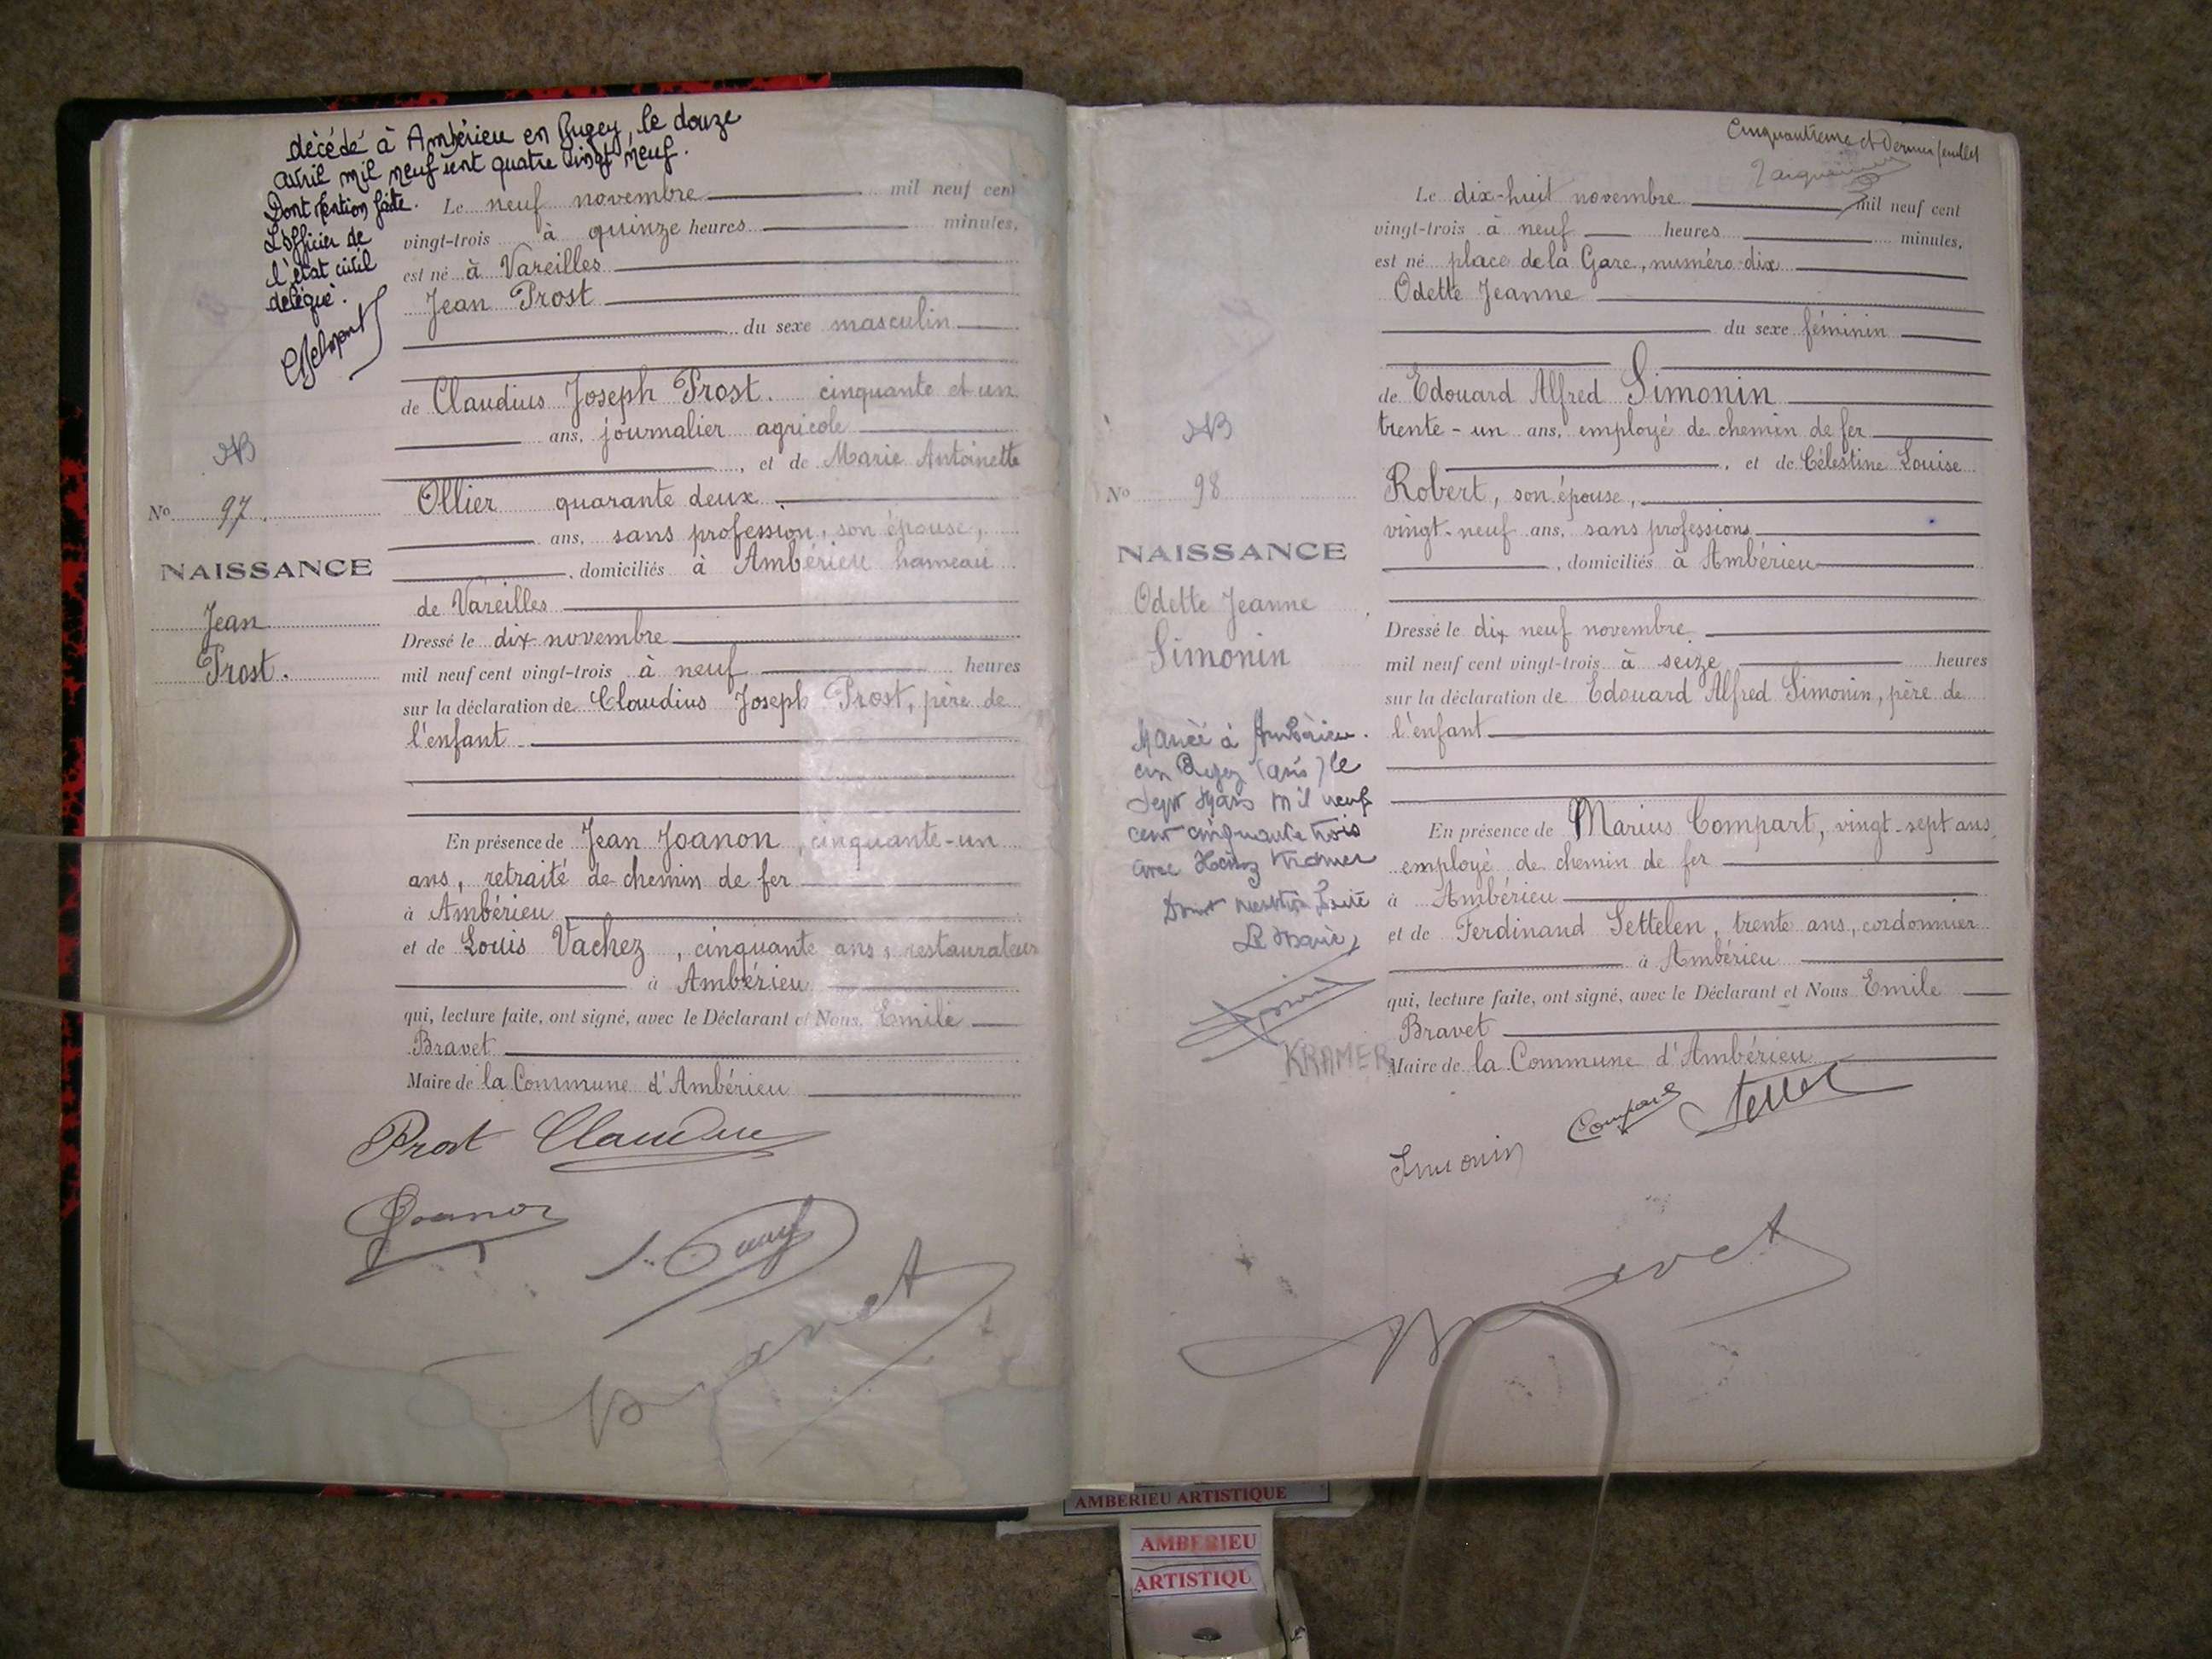 décédé à Ambérieu en Bugey, le douze
avril mil neuf cent quatre vingt neuf.
Dont mention faite.
L'officier de
l'état civil
délégué.
Le neuf novembre mil neuf cent
vingt-trois à quinze heures minutes,
est né à Vareilles
Jean Prost
du sexe masculin
de Claudius Joseph Prost. cinquante et un
ans, journalier agricole
, et de Marie Antoinette
Ollier quarante deux
ans, sans profession, son épouse,
, domiciliés à Ambérieu hameau
de Vareilles
Dressé le dix novembre
mil neuf cent vingt-trois à neuf heures
sur la déclaration de Claudius Joseph Prost, père de
l'enfant
En présence de Jean Joanon, cinquante-un
ans, retraité de chemin de fer
à Ambérieu
et de Louis Vachez, cinquante ans, restaurateur
à Ambérieu
qui, lecture faite, ont signé, avec le Déclarant et Nous, Emile
Bravet
Maire de la Commune d'Ambérieu
No 97.
NAISSANCE
Jean
Prost.
Prost Claudius
Joanon
Bravet
Cinquantième et Dernier feuillet
Le dix-huit novembre mil neuf cent
vingt-trois à neuf heures minutes,
est né place de la Gare, numéro dix
Odette Jeanne
du sexe féminin
de Edouard Alfred Simonin
trente-un ans, employé de chemin de fer
, et de Célestine Louise
Robert, son épouse,
vingt-neuf ans, sans professions
, domiciliés à Ambérieu
Dressé le dix neuf novembre
mil neuf cent vingt-trois à seize heures
sur la déclaration de Edouard Alfred Simonin, père de
l'enfant
En présence de Marius Compart, vingt-sept ans,
employé de chemin de fer
à Ambérieu
et de Ferdinand Settelen, trente ans, cordonnier
à Ambérieu
qui, lecture faite, ont signé, avec le Déclarant et Nous Emile
Bravet
Maire de la Commune d'Ambérieu
No 98
NAISSANCE
Odette Jeanne
Simonin
Mariée à Ambérieu
en Bugey (Ain) le
sept Mars mil neuf
cent cinquante trois
avec Heinz Kramer
Dont mention faite
Le Maire,
KRAMER
Simonin
Compart
Bravet
AMBERIEU ARTISTIQUE
AMBERIEU
ARTISTIQU